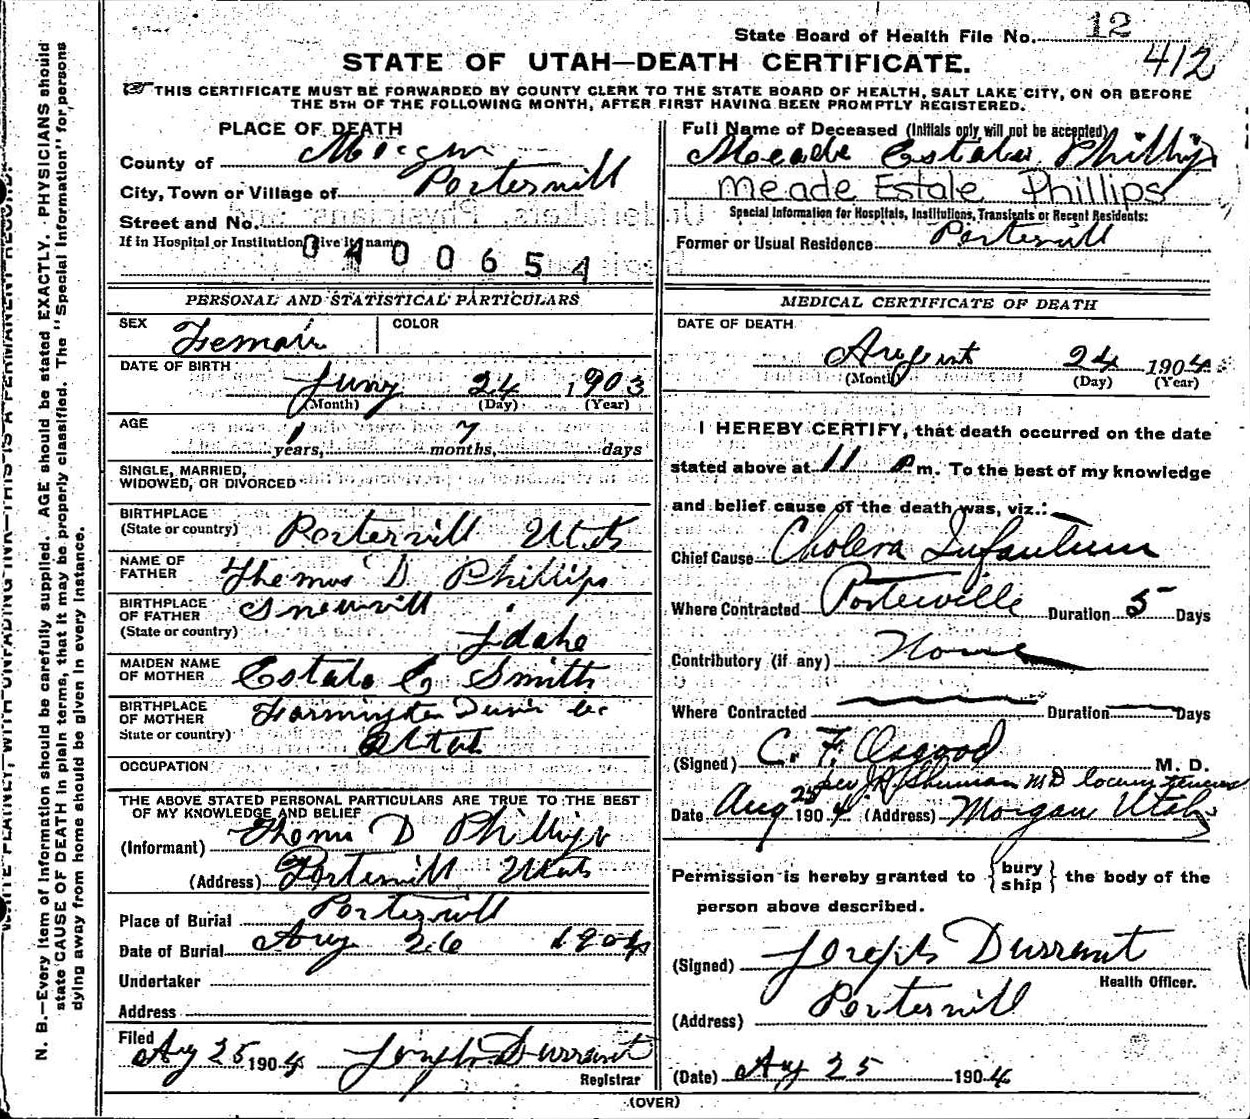 State Board of Health File No. 12
412
STATE OF UTAH—DEATH CERTIFICATE.
THIS CERTIFICATE MUST BE FORWARDED BY COUNTY CLERK TO THE STATE BOARD OF HEALTH, SALT LAKE CITY, ON OR BEFORE
THE 5TH OF THE FOLLOWING MONTH, AFTER FIRST HAVING BEEN PROMPTLY REGISTERED.
PLACE OF DEATH
County of Morgan
City, Town or Village of Portervill
Street and No.
If in Hospital or Institution give its name
0400654
Full Name of Deceased (Initials only will not be accepted)
Meade Estale Phillips
Meade Estale Phillips
Special Information for Hospitals, Institutions, Transients or Recent Residents:
Former or Usual Residence Portervill
PERSONAL AND STATISTICAL PARTICULARS
SEX Female
COLOR
DATE OF BIRTH
24 1903
(Month) (Day) (Year)
AGE
1 years, 7 months, days
SINGLE, MARRIED,
WIDOWED, OR DIVORCED
BIRTHPLACE
(State or country) Portervill Utah
NAME OF
FATHER Thomas D Phillips
BIRTHPLACE
OF FATHER
(State or country) Idaho
MAIDEN NAME
OF MOTHER Smith
BIRTHPLACE
OF MOTHER Farmington
State or country) Utah
OCCUPATION
THE ABOVE STATED PERSONAL PARTICULARS ARE TRUE TO THE BEST
OF MY KNOWLEDGE AND BELIEF
(Informant) Thomas D Phillips
(Address) Portervill Utah
Place of Burial Portervill
Date of Burial Aug 26 1904
Undertaker
Address
Filed
Aug 25 1904 Joseph Durrant
Registrar
MEDICAL CERTIFICATE OF DEATH
DATE OF DEATH
August 24 1904
(Month) (Day) (Year)
I HEREBY CERTIFY, that death occurred on the date
stated above at 11 m. To the best of my knowledge
and belief cause of the death was, viz.:
Chief Cause Cholera Infantum
Where Contracted Porterville Duration 5 Days
Contributory (if any) None
Where Contracted Duration Days
(Signed) C. F. Osgood M. D.
per MD locum tenens
Date Aug 25 1904 (Address) Morgan Utah
Permission is hereby granted to {bury
ship} the body of the
person above described.
(Signed) Joseph Durrant
Health Officer.
(Address) Portervill
(Date) Aug 25 1904
(OVER)
N. B.—Every item of information should be carefully supplied. AGE should be stated EXACTLY. PHYSICIANS should
state CAUSE OF DEATH in plain terms, that it may be properly classified. The "Special Information" for persons
dying away from home should be given in every instance.
WRITE PLAINLY, WITH UNFADING INK—THIS IS A PERMANENT RECORD.